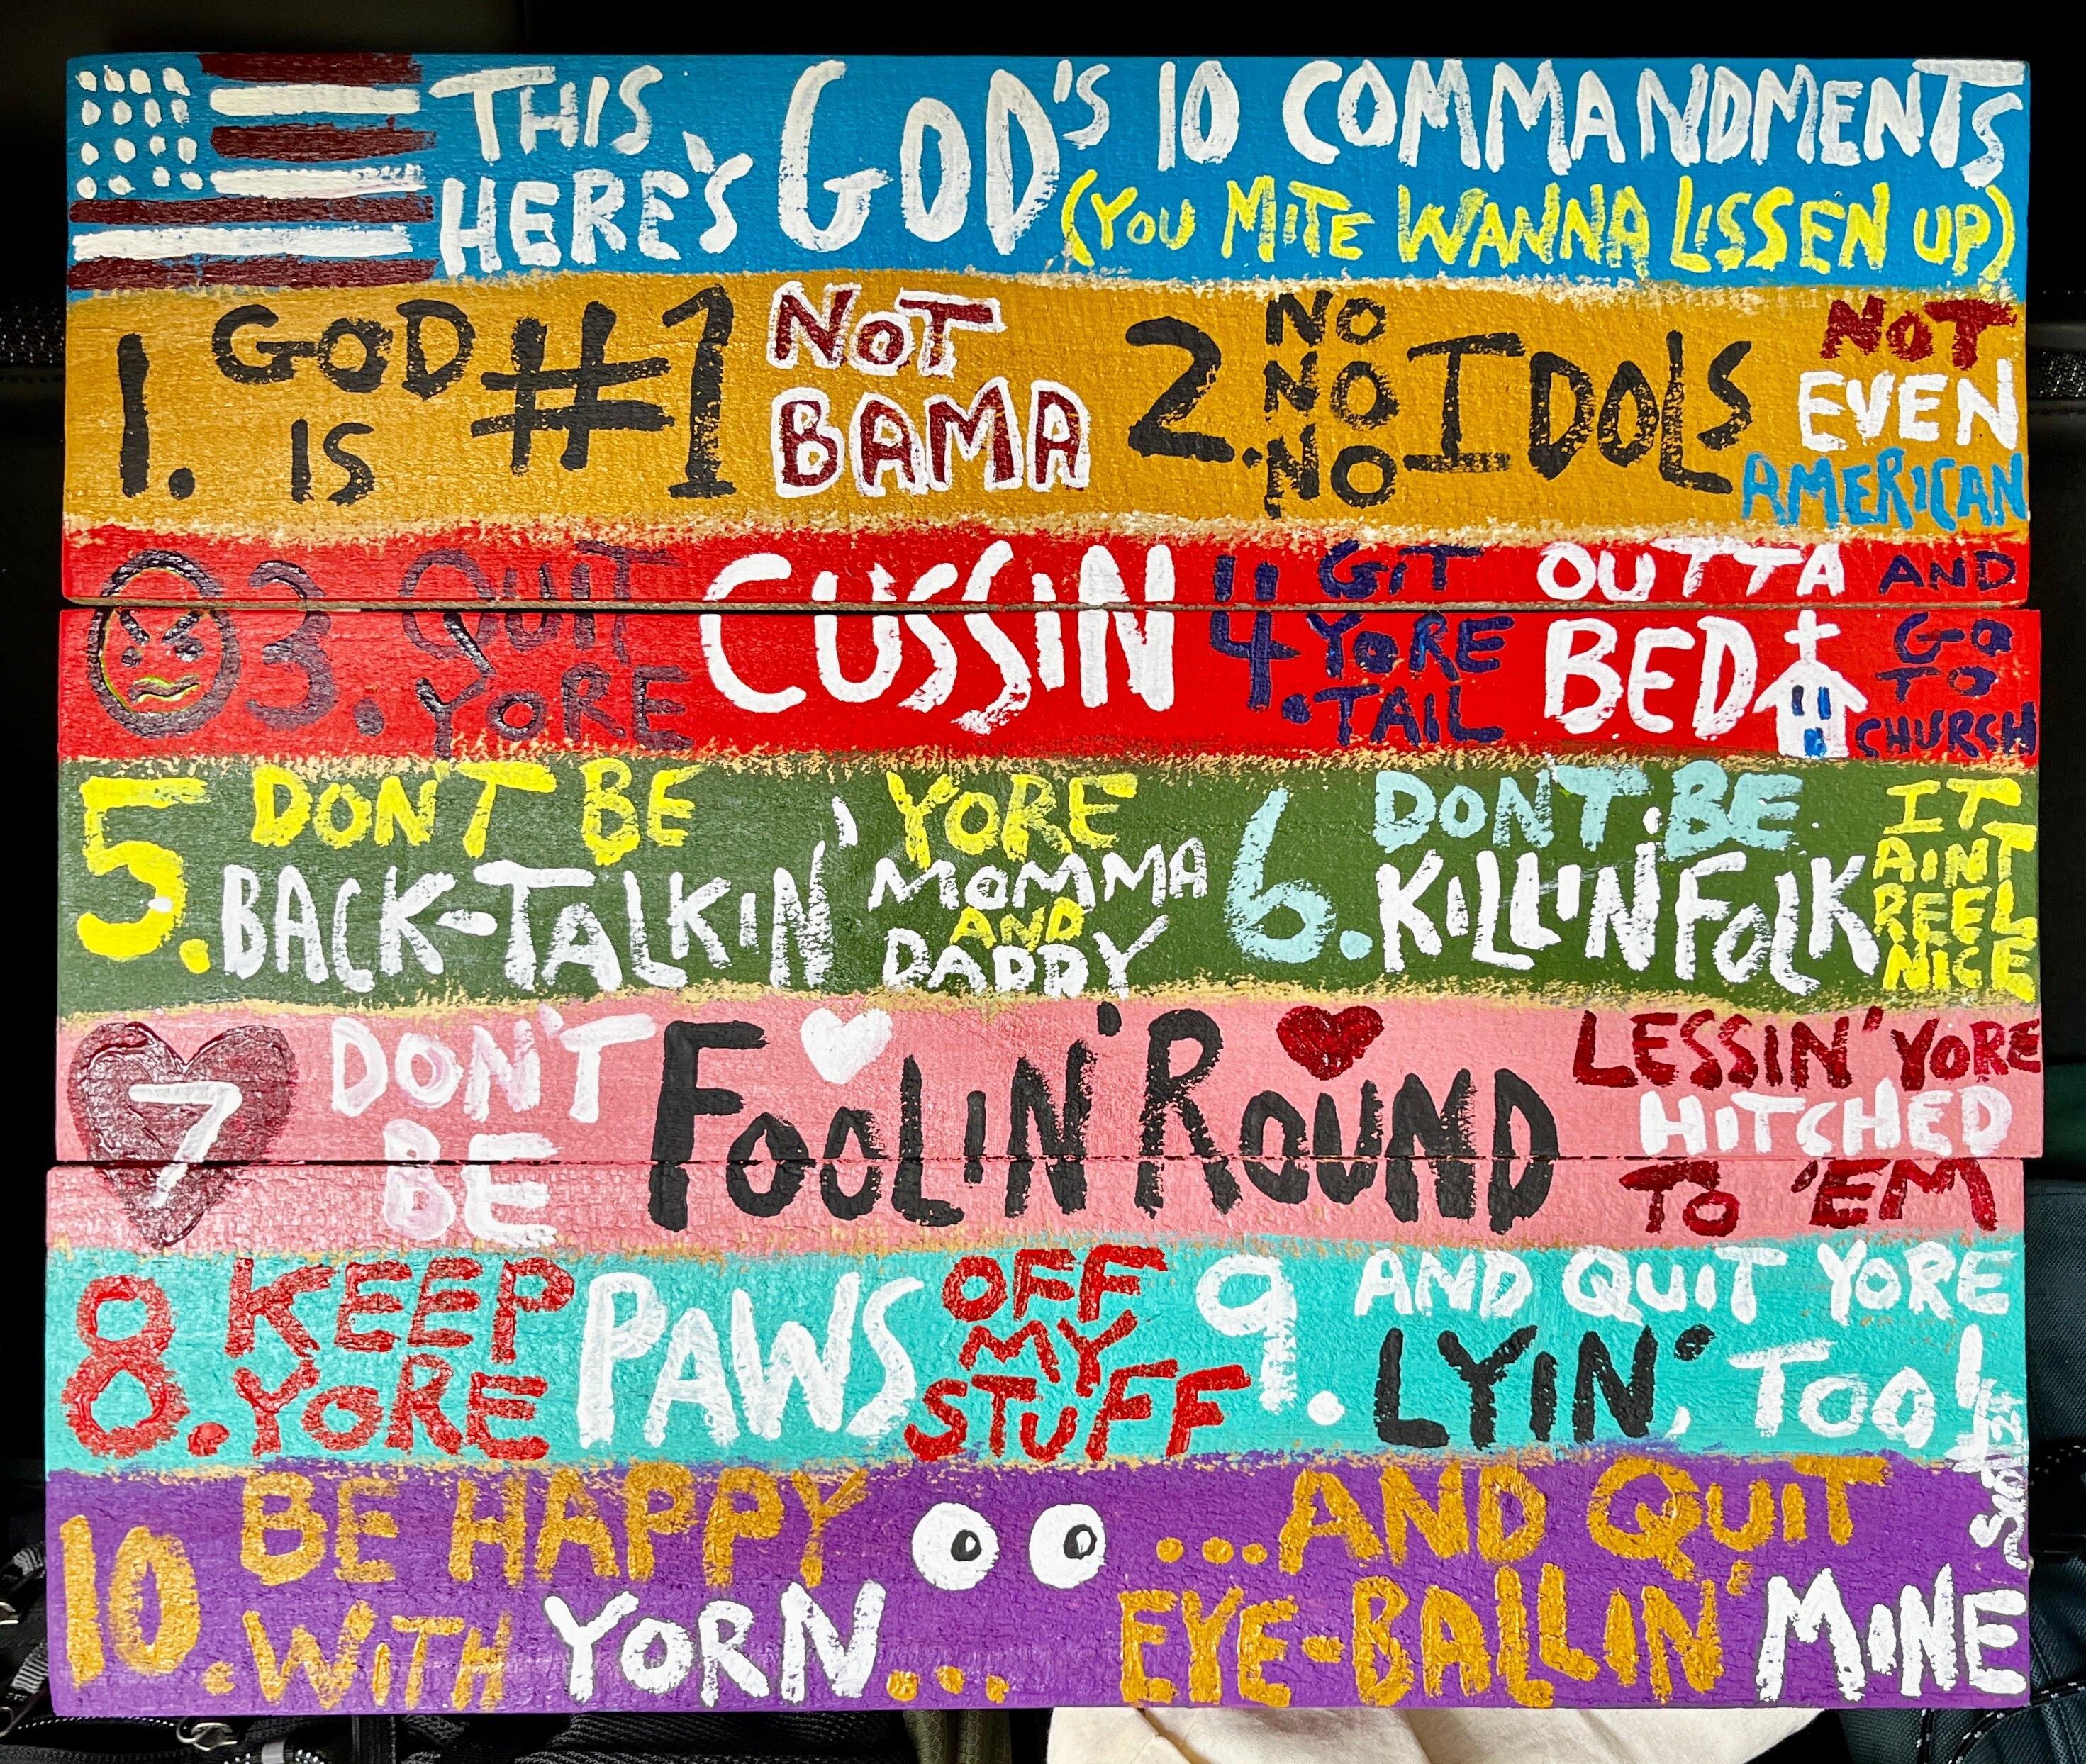 THIS GOD'S 10 COMMANDMENTS
HERE'S (YOU MITE WANNA LISSEN UP)
1. GOD IS #1 NOT BAMA
2. NO NO NO IDOLS NOT EVEN AMERICAN
3. QUIT YORE CUSSIN
4. GIT YORE TAIL OUTTA BED AND GO TO CHURCH
5. DON'T BE BACK-TALKIN' YORE MOMMA AND DADDY
6. DON'T BE KILLIN' FOLK IT AINT REEL NICE
7 DON'T BE FOOLIN' ROUND LESSIN' YORE HITCHED TO 'EM
8. KEEP YORE PAWS OFF MY STUFF
9. AND QUIT YORE LYIN', TOO!
10. BE HAPPY WITH YORN...
...AND QUIT EYE-BALLIN' MINE